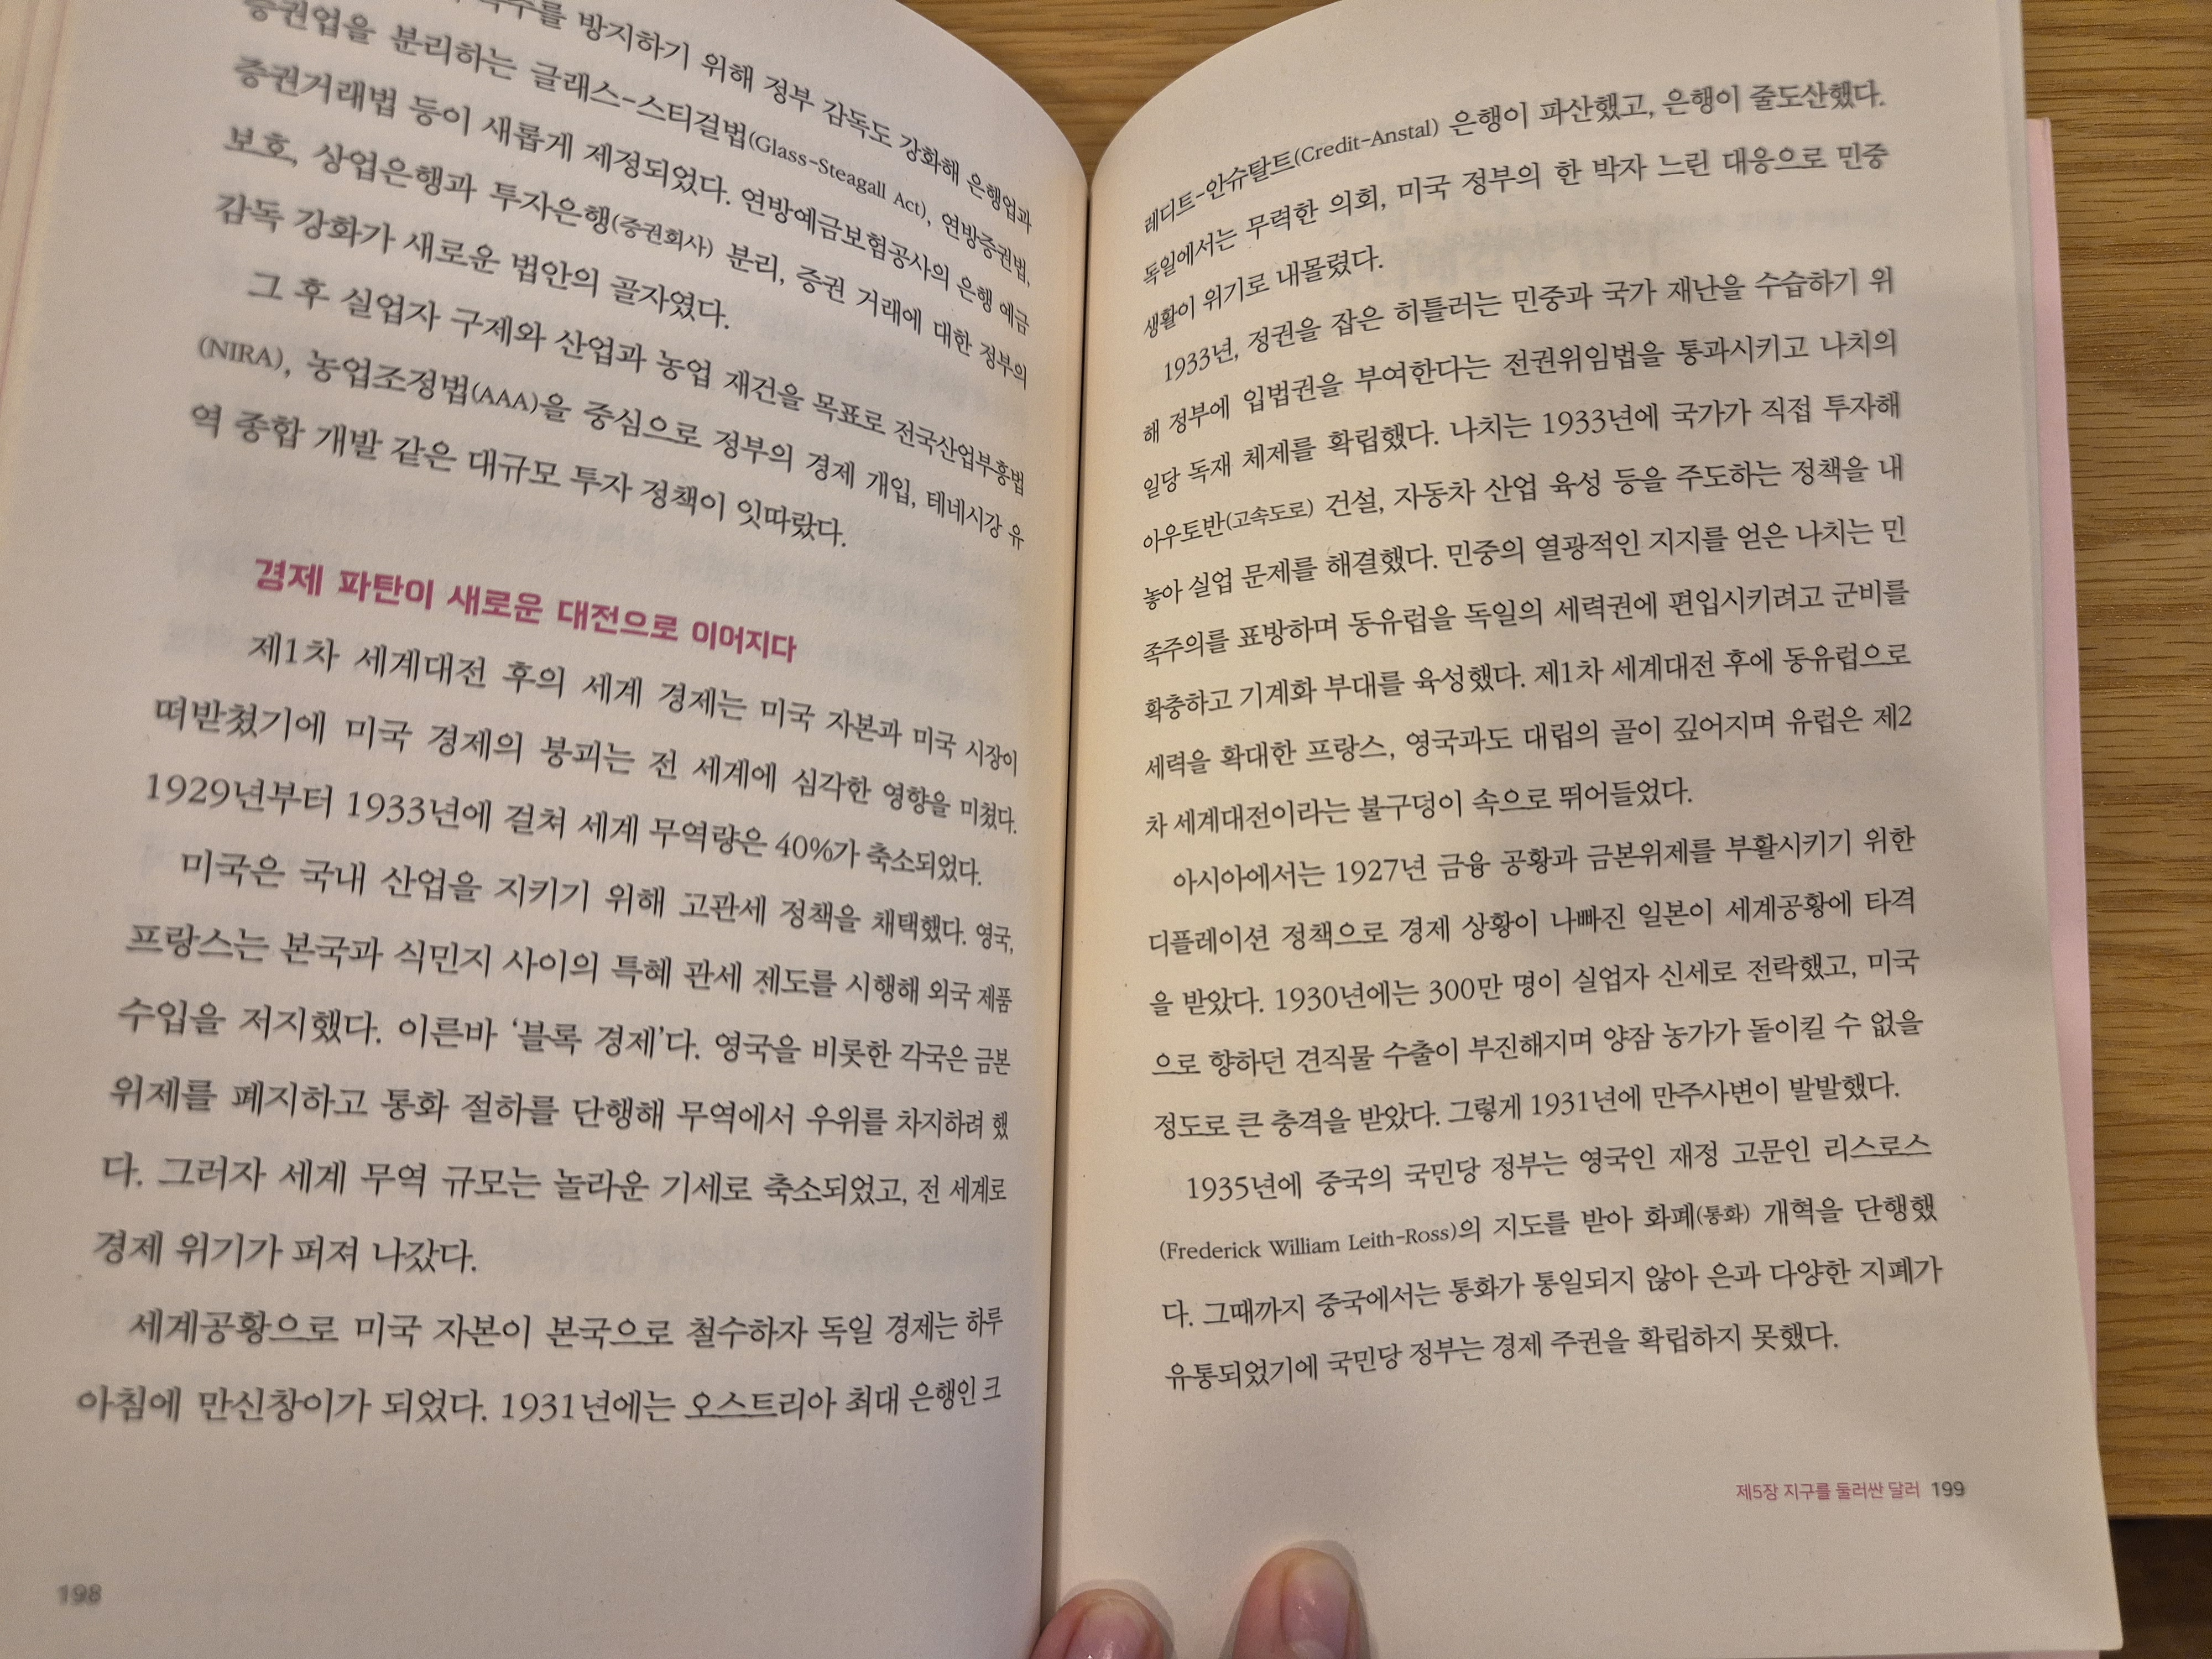 방지하기 위해 정부 감독도 강화해 은행업과
증권업을 분리하는 글래스-스티걸법(Glass-Steagall Act), 연방증권법,
증권거래법 등이 새롭게 제정되었다. 연방예금보험공사의 은행 예금
보호, 상업은행과 투자은행(증권회사) 분리, 증권 거래에 대한 정부의
감독 강화가 새로운 법안의 골자였다.
그 후 실업자 구제와 산업과 농업 재건을 목표로 전국산업부흥법
(NIRA), 농업조정법(AAA)을 중심으로 정부의 경제 개입, 테네시강 유
역 종합 개발 같은 대규모 투자 정책이 잇따랐다.
경제 파탄이 새로운 대전으로 이어지다
제1차 세계대전 후의 세계 경제는 미국 자본과 미국 시장이
떠받쳤기에 미국 경제의 붕괴는 전 세계에 심각한 영향을 미쳤다.
1929년부터 1933년에 걸쳐 세계 무역량은 40%가 축소되었다.
미국은 국내 산업을 지키기 위해 고관세 정책을 채택했다. 영국,
프랑스는 본국과 식민지 사이의 특혜 관세 제도를 시행해 외국 제품
수입을 저지했다. 이른바 ‘블록 경제’다. 영국을 비롯한 각국은 금본
위제를 폐지하고 통화 절하를 단행해 무역에서 우위를 차지하려 했
다. 그러자 세계 무역 규모는 놀라운 기세로 축소되었고, 전 세계로
경제 위기가 퍼져 나갔다.
세계공황으로 미국 자본이 본국으로 철수하자 독일 경제는 하루
아침에 만신창이가 되었다. 1931년에는 오스트리아 최대 은행인 크
198
레디트-안슈탈트(Credit-Anstal) 은행이 파산했고, 은행이 줄도산했다.
독일에서는 무력한 의회, 미국 정부의 한 박자 느린 대응으로 민중
생활이 위기로 내몰렸다.
1933년, 정권을 잡은 히틀러는 민중과 국가 재난을 수습하기 위
해 정부에 입법권을 부여한다는 전권위임법을 통과시키고 나치의
일당 독재 체제를 확립했다. 나치는 1933년에 국가가 직접 투자해
아우토반(고속도로) 건설, 자동차 산업 육성 등을 주도하는 정책을 내
놓아 실업 문제를 해결했다. 민중의 열광적인 지지를 얻은 나치는 민
족주의를 표방하며 동유럽을 독일의 세력권에 편입시키려고 군비를
확충하고 기계화 부대를 육성했다. 제1차 세계대전 후에 동유럽으로
세력을 확대한 프랑스, 영국과도 대립의 골이 깊어지며 유럽은 제2
차 세계대전이라는 불구덩이 속으로 뛰어들었다.
아시아에서는 1927년 금융 공황과 금본위제를 부활시키기 위한
디플레이션 정책으로 경제 상황이 나빠진 일본이 세계공황에 타격
을 받았다. 1930년에는 300만 명이 실업자 신세로 전락했고, 미국
으로 향하던 견직물 수출이 부진해지며 양잠 농가가 돌이킬 수 없을
정도로 큰 충격을 받았다. 그렇게 1931년에 만주사변이 발발했다.
1935년에 중국의 국민당 정부는 영국인 재정 고문인 리스로스
(Frederick William Leith-Ross)의 지도를 받아 화폐(통화) 개혁을 단행했
다. 그때까지 중국에서는 통화가 통일되지 않아 은과 다양한 지폐가
유통되었기에 국민당 정부는 경제 주권을 확립하지 못했다.
제5장 지구를 둘러싼 달러 199